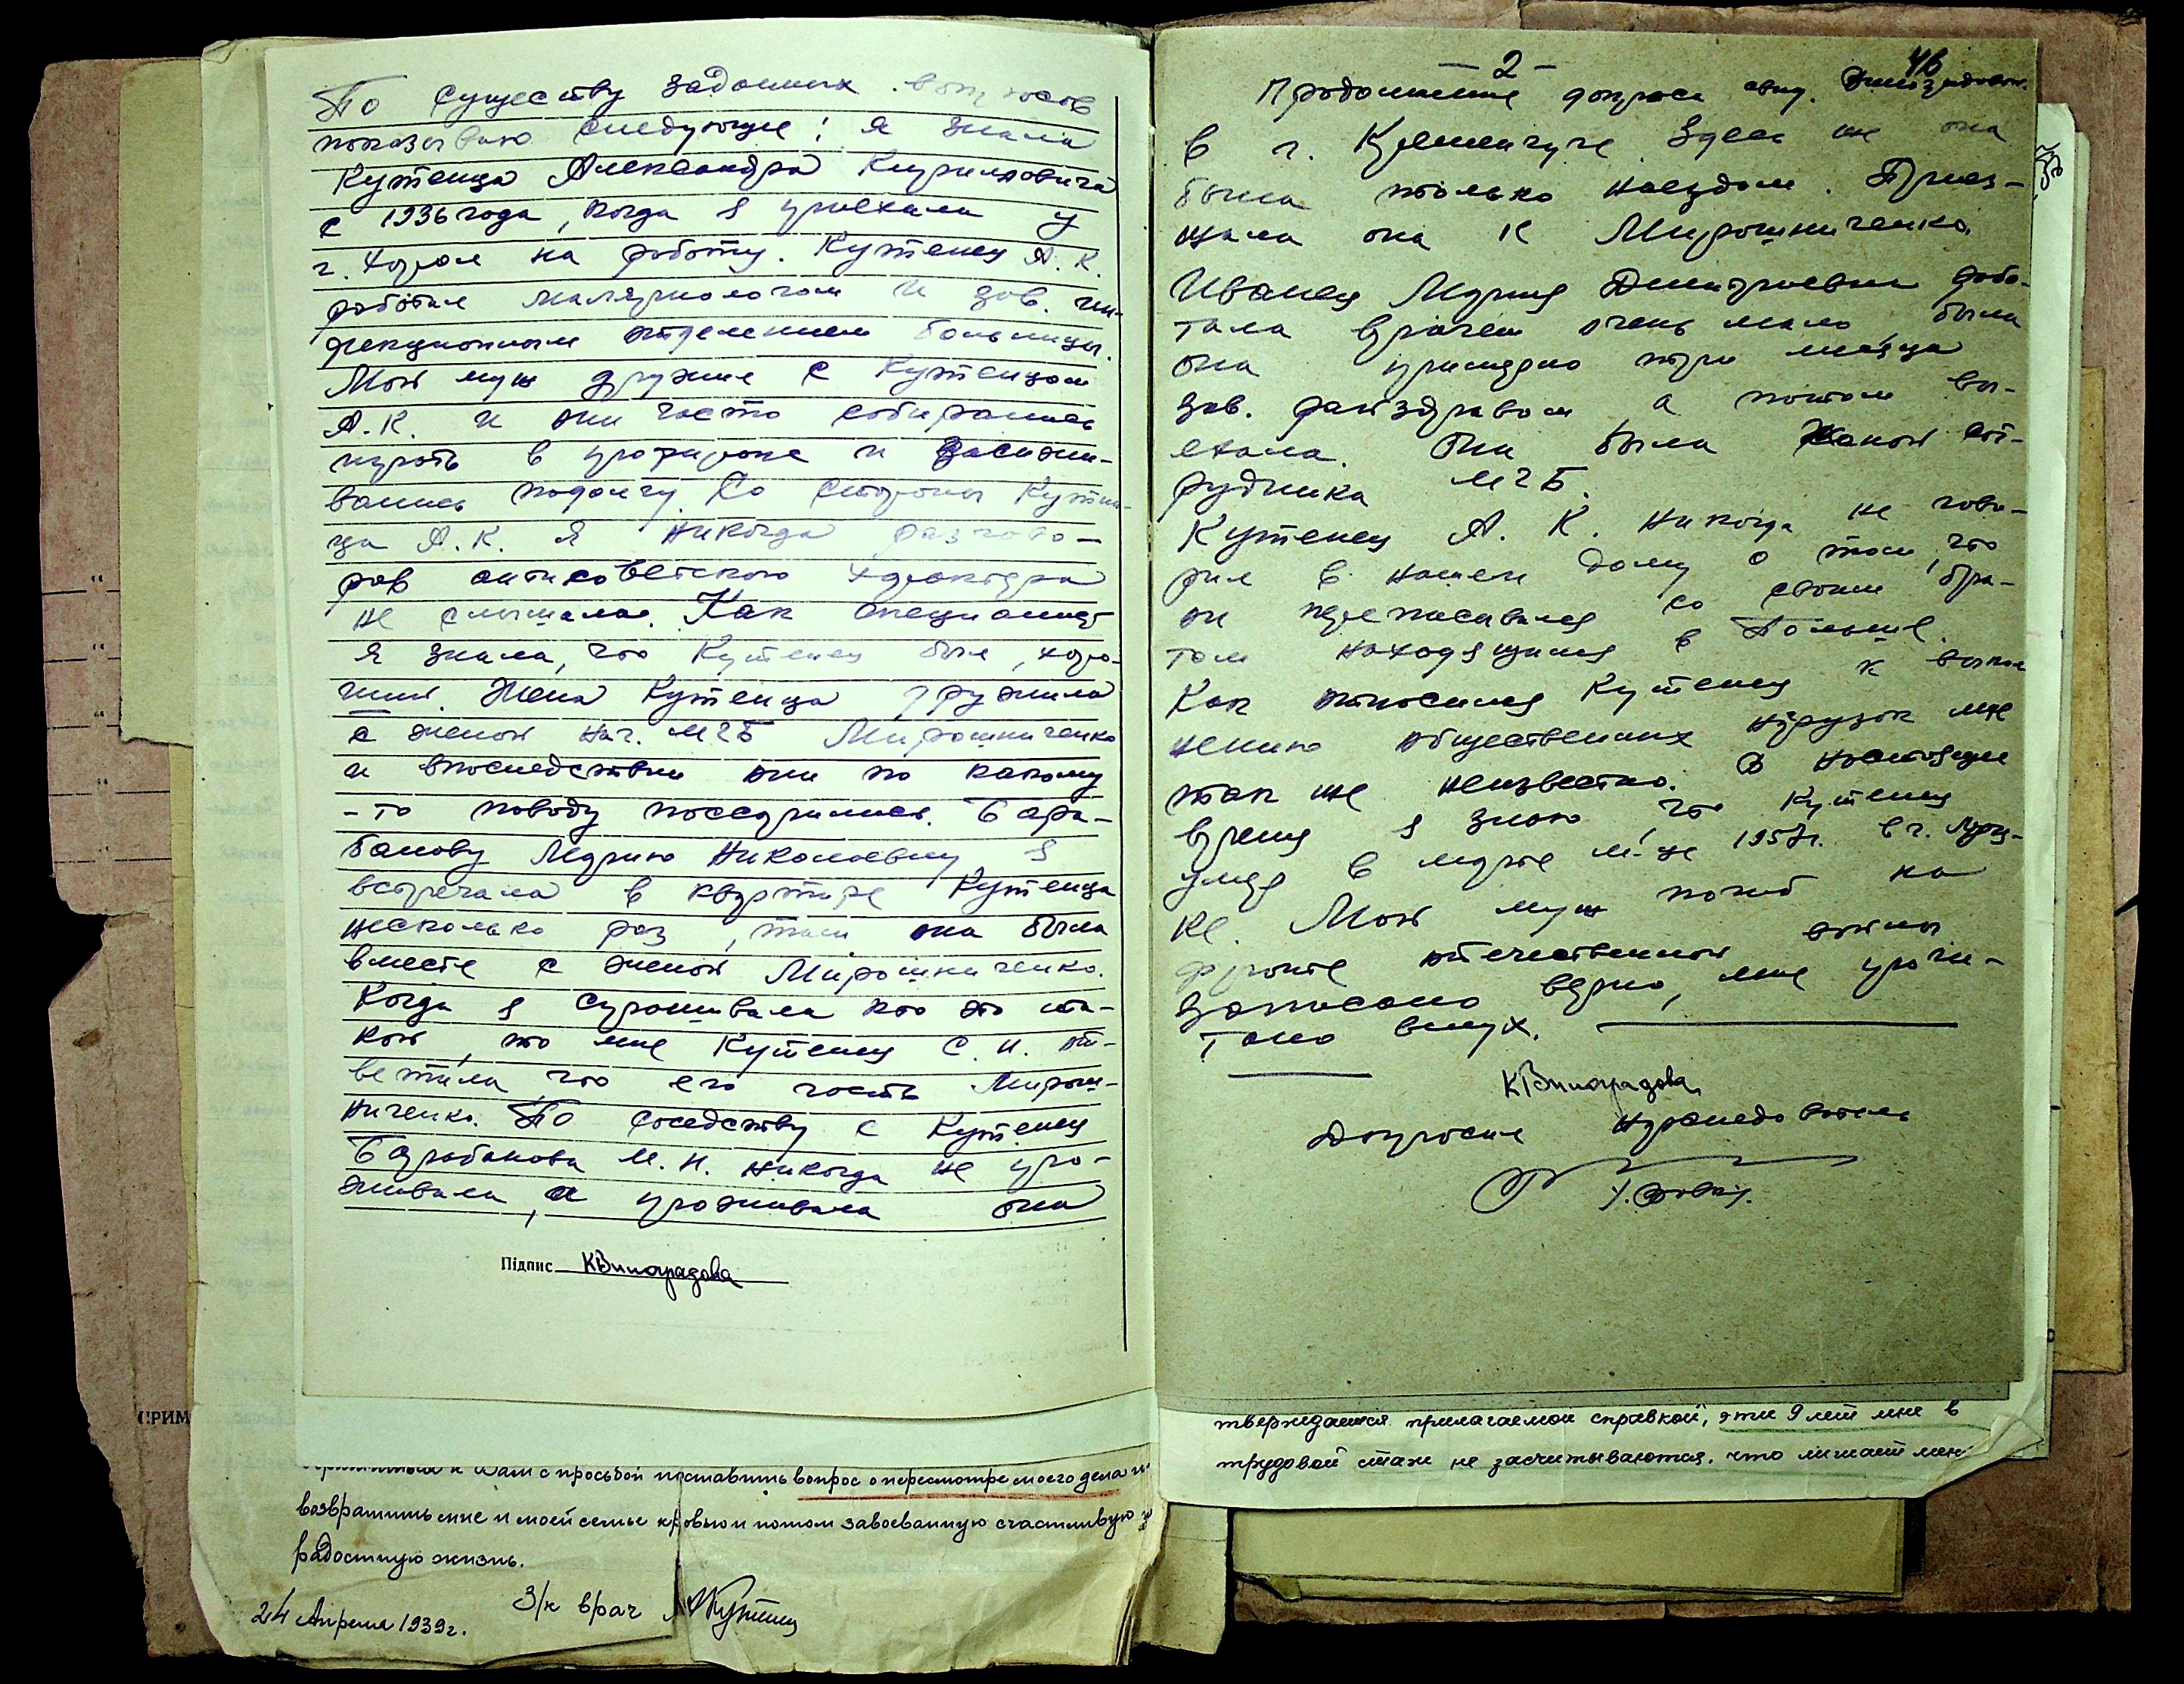 По существу заданных вопросов
показываю следующее: я знала
Кутенца Александра Кирилловича
с 1936 года, когда я приехала у
г. Хорол на работу. Кутенец А. К.
работал маляриологом и зав. ин-
фекционным отделением больницы.
Мой муж дружил с Кутенцом
А. К. и они часто собирались
играть в преферанс и засижи-
вались подолгу. Со стороны Кутен-
ца А. К. я никогда разгово-
ров антисоветского характера
не слышала. Как специалист
я знала, что Кутенец был, хоро-
ший. Жена Кутенца дружила
с женой нач. МГБ Мирошниченко
и впоследствии они по какому
-то поводу поссорились. Бара-
банову Марию Николаевну я
встречала в квартире Кутенца
несколько раз, там она была
вместе с женой Мирошниченко.
Когда я спрашивала кто это та-
кой, то мне Кутенец С. И. от-
ветила что его гость Мирош-
ниченко. По соседству с Кутенец
Барабанова М. Н. никогда не про-
живала, а проживала она
Підпис КВиноградова
- 2 -
46
Продолжение допроса свид. Виноградовой.
в г. Кременчуге. Здесь же она
была только наездом. Приез-
жала она к Мирошниченко.
Иванец Мария Дмитриевна рабо-
тала врачем очень мало, была
она примерно три месяца
зав. райздравом а потом вы-
ехала. Она была женой сот-
рудника МГБ.
Кутенец А. К. никогда не гово-
рил в нашем дому о том, что
он переписывался со своим бра-
том находящимся в Польше.
Как относился Кутенец к выпол
нению общественных нагрузок мне
так же неизвестно. В настоящее
время я знаю что Кутенец
умер в марте м-це 1957г. в г. Луц-
ке. Мой муж погиб на
фронте отечественной войны
записано верно, мне прочи-
тано вслух.
КВиноградова
Допросил
СПРИМ
к Вам с просьбой поставить вопрос о пересмотре моего дела и
возвратить мне и моей семье кровью и потом завоеванную счастливую и
радостную жизнь.
24 Апреля 1939г. З/к врач АКутенец
тверждается прилагаемой справкой, эти 9 лет мне в
трудовой стаж не засчитываются, что лишает мен